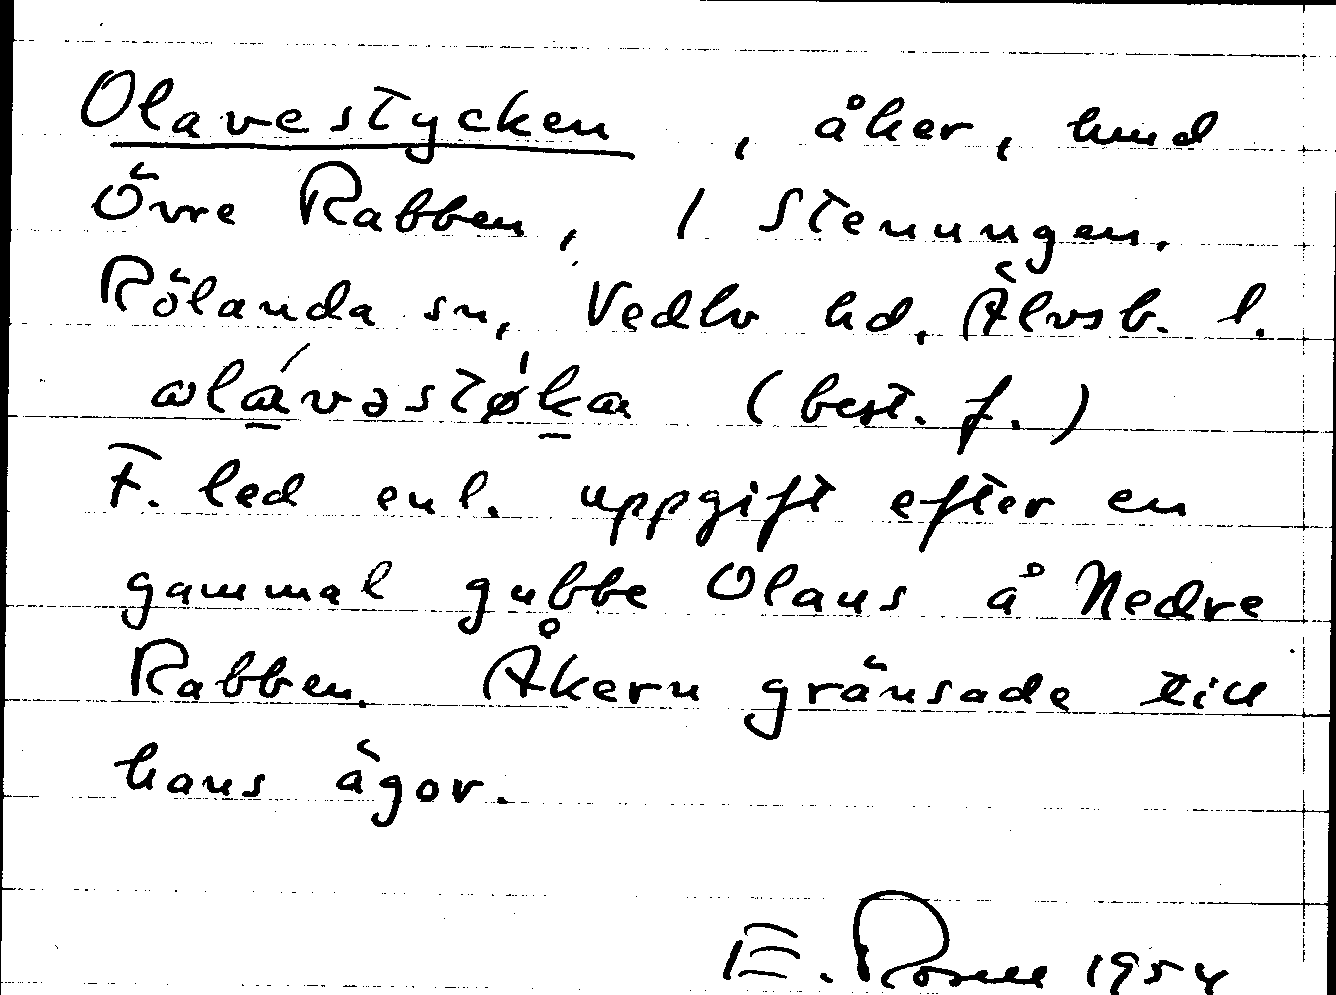 Olavestycken, åker, hmd
Övre Rabben, 1 Stenungen.
Rölanda sn, Vedbo hd, Älvsb. l.
(best. f.)
F. led enl. uppgift efter en
gammal gubbe Olaus å Nedre
Rabben. Åkern gränsade till
hans ägor.
E. 1954